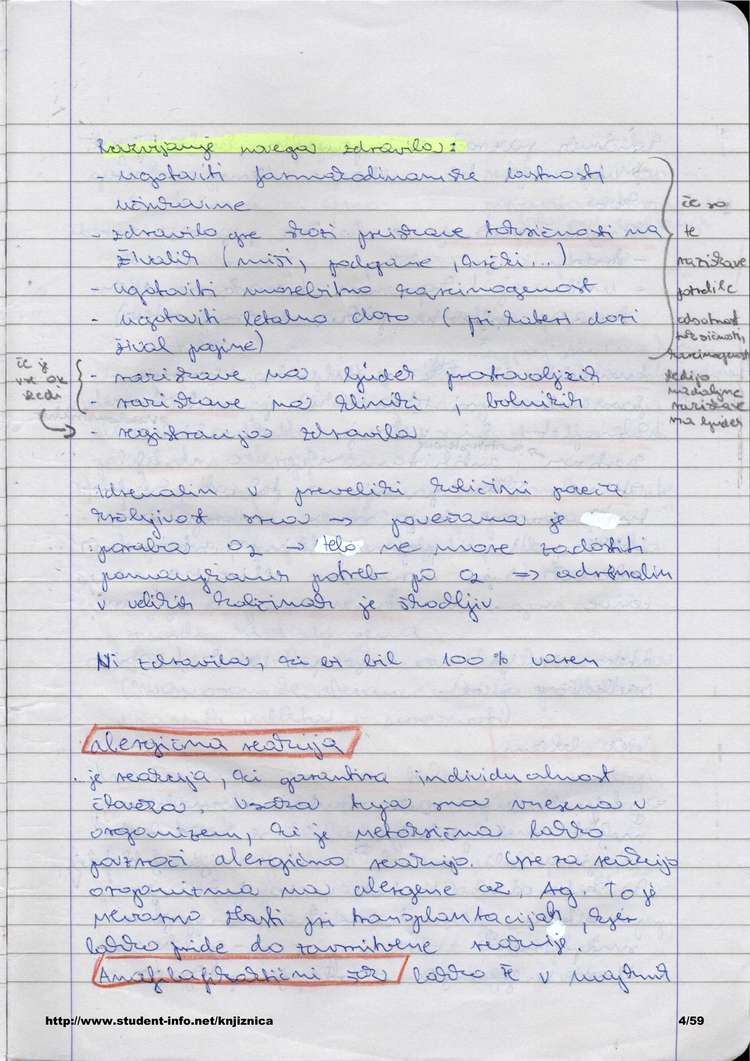 Razvijanje novega zdravila:
- ugotoviti farmakodinamske lastnosti
učinkovine
- zdravilo gre skozi preiskave toksičnosti na
živalih (miši, podgane, kužki...)
- ugotoviti morebitno karcinogenost
- ugotoviti letalno dozo (pri kateri dozi
žival pogine)
- raziskave na ljudeh prostovoljcih
- raziskave na kliniki, bolnikih
- registracija zdravila
če so
te
raziskave
potrdile
odsotnost
toksičnosti,
karcinogenosti
sledijo
nadaljne
raziskave
na ljudeh
če je
vse ok
sledi
Adrenalin v preveliki količini poveča
srca → povečana je
poraba O2 → telo ne more zadostiti
potreb po O2 => adrenalin
v velikih količinah je škodljiv
Ni zdravila, ki bi bil 100% varen
alergična reakcija
je reakcija, ki garantira individualnost
človeka. Vsaka tuja snov vnesena v
organizem, ki je netoksična lahko
povzroči alergično reakcijo. Gre za reakcijo
organizma na alergene oz. Ag. To je
nevarno zlasti pri transplantacijah, kjer
lahko pride do zavrnitvene reakcije.
Anafilaktični šok lahko že v majhnih
http://www.student-info.net/knjiznica
4/59